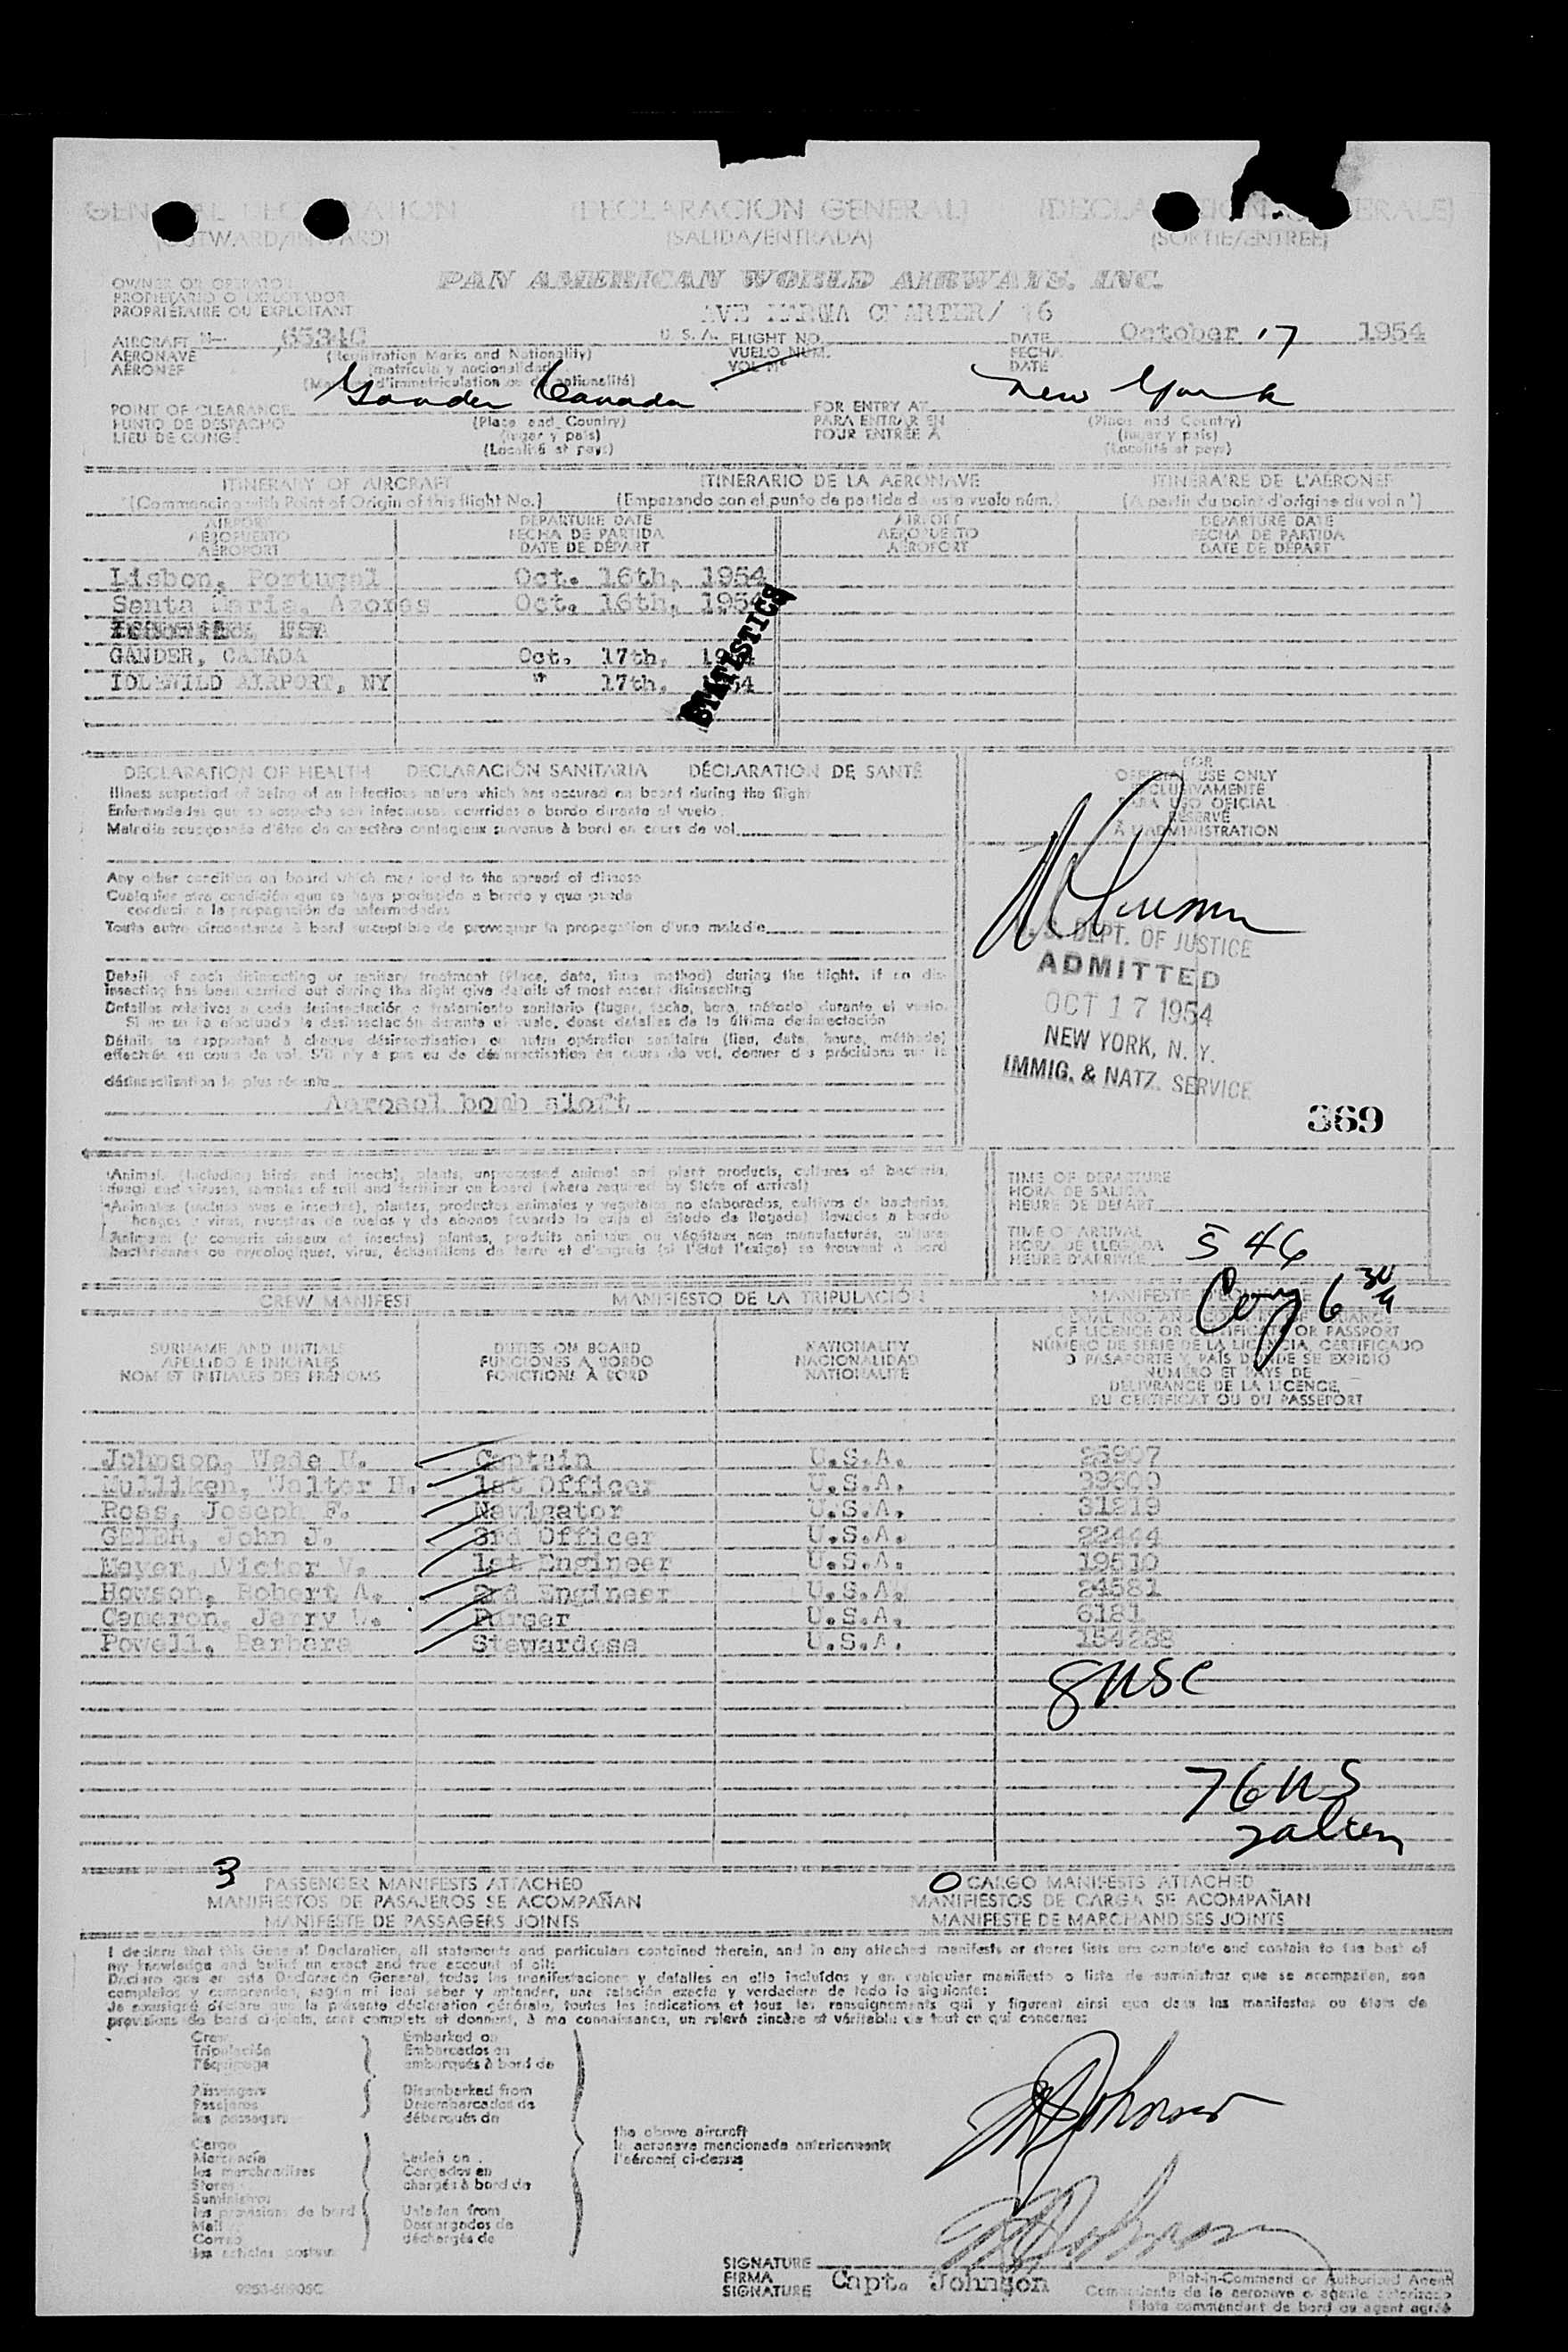 (DECLARACION GENERAL)
(SALIDA/ENTRADA)
OWNER OR OPERATOR
PROPIETARIO O EXPLOTADOR
PROPRIÉTAIRE OU EXPLOITANT
PAN AMERICAN WORLD AIRWAYS, INC.
AVE MARIA CHARTER/ 16
AIRCRAFT N-
AERONAVE
AÉRONEF
(Registration Marks and Nationality)
(matrícula y nacionalidad)
U.S.A.
FLIGHT NO.
VUELO NUM.
VOL Nº
DATE
FECHA
DATE
October 17 1954
POINT OF CLEARANCE
PUNTO DE DESPACHO
LIEU DE CONGÉ
Gander Canada
(Place and Country)
(lugar y país)
(Localité et pays)
FOR ENTRY AT
PARA ENTRAR EN
POUR ENTRÉE A
New York
(Place and Country)
(lugar y país)
(Localité et pays)
ITINERARY OF AIRCRAFT ITINERARIO DE LA AERONAVE ITINÉRAIRE DE L'AÉRONEF
(Commencing with Point of Origin of this flight No.) (Empezando con el punto de partida de este vuelo núm.) (A partir du point d'origine du vol nº)
AIRPORT
AEROPUERTO
AÉROPORT
DEPARTURE DATE
FECHA DE PARTIDA
DATE DE DÉPART
AIRPORT
AEROPUERTO
AÉROPORT
DEPARTURE DATE
FECHA DE PARTIDA
DATE DE DÉPART
Lisbon, Portugal Oct. 16th, 1954
Santa Maria, Azores Oct. 16th, 1954
GANDER, CANADA Oct. 17th, 1954
IDLEWILD AIRPORT, NY " 17th, 1954
STATISTICS
DECLARATION OF HEALTH DECLARACIÓN SANITARIA DÉCLARATION DE SANTÉ
Illness suspected of being of an infectious nature which has occured on board during the flight
Enfermedades que se sospecha son infecciosas ocurridas a bordo durante el vuelo
Maladie soupçonnée d'être de caractère contagieux survenue à bord en cours de vol
Any other condition on board which may lead to the spread of disease
Cualquier otra condición que se haya producido a bordo y que pueda
conducir a la propagación de enfermedades
Toute autre circonstance à bord susceptible de provoquer la propagation d'une maladie
Detail of each disinsecting or sanitary treatment (Place, date, time method) during the flight. If no dis-
insecting has been carried out during the flight give details of most recent disinsecting
Detalles relativos a cada desinsectación o tratamiento sanitario (lugar, fecha, hora, método) durante el vuelo.
Si no se ha efectuado la desinsectación durante el vuelo, dense detalles de la última desinsectación
Détails se rapportant à chaque désinsectisation ou autre opération sanitaire (lieu, date, heure, méthode)
effectués en cours de vol. S'il n'y a pas eu de désinsectisation en cours de vol, donner des précisions sur la
désinsectisation la plus récente
Aerosol bomb aloft
FOR
OFFICIAL USE ONLY
EXCLUSIVAMENTE
PARA USO OFICIAL
RÉSERVÉ
À L'ADMINISTRATION
U.S. DEPT. OF JUSTICE
ADMITTED
OCT 17 1954
NEW YORK, N.Y.
IMMIG. & NATZ. SERVICE
369
Animal, (including birds and insects), plants, unprocessed animal and plant products, cultures of bacteria,
fungi and viruses, samples of soil and fertilizer on board (where required by State of arrival)
Animales (incluso aves e insectos), plantas, productos animales y vegetales no elaborados, cultivos de bacterias,
hongos y virus, muestras de suelos y de abonos (cuando lo exija el Estado de llegada) llevados a bordo
Animaux (y compris oiseaux et insectes) plantes, produits animaux ou végétaux non manufacturés, cultures
bactériennes ou mycologiques, virus, échantillons de terre et d'engrais (si l'État l'exige) se trouvant à bord
TIME OF DEPARTURE
HORA DE SALIDA
HEURE DE DÉPART
TIME OF ARRIVAL
HORA DE LLEGADA
HEURE D'ARRIVÉE
5 46
CREW MANIFEST MANIFIESTO DE LA TRIPULACIÓN
SURNAME AND INITIALS
APELLIDO E INICIALES
NOM ET INITIALES DES PRÉNOMS
DUTIES ON BOARD
FUNCIONES A BORDO
FONCTIONS À BORD
NATIONALITY
NACIONALIDAD
NATIONALITÉ
OF LICENCE OR CERTIFICATE OR PASSPORT
NÚMERO DE SERIE DE LA LICENCIA, CERTIFICADO
O PASAPORTE Y PAÍS DONDE SE EXPIDIÓ
NUMÉRO ET PAYS DE
DÉLIVRANCE DE LA LICENCE,
DU CERTIFICAT OU DU PASSEPORT
Johnson, Wade Captain U.S.A. 25907
Mulliken, Walter H. 1st Officer U.S.A. 39600
Ross, Joseph F. Navigator U.S.A. 31219
John J. 3rd Officer U.S.A. 22444
Mayer, Victor V. 1st Engineer U.S.A. 19510
Howson, Robert A. 2nd Engineer U.S.A. 24581
Cameron, Jerry Purser U.S.A. 6181
Powell, Barbara Stewardess U.S.A. 154238
8 USC
76 US
2 alien
3 PASSENGER MANIFESTS ATTACHED
MANIFIESTOS DE PASAJEROS SE ACOMPAÑAN
MANIFESTE DE PASSAGERS JOINTS
0 CARGO MANIFESTS ATTACHED
MANIFIESTOS DE CARGA SE ACOMPAÑAN
MANIFESTE DE MARCHANDISES JOINTS
I declare that this General Declaration, all statements and particulars contained therein, and in any attached manifests or stores lists are complete and contain to the best of
my knowledge and belief an exact and true account of all:
Declaro que en esta Declaración General, todas las manifestaciones y detalles en ella incluídos y en cualquier manifiesto o lista de suministros que se acompañen, son
completos y comprenden, según mi leal saber y entender, una relación exacta y verdadera de todo lo siguiente:
Je soussigné déclare que la présente déclaration générale, toutes les indications et tous les renseignements qui y figurent ainsi que dans les manifestes ou états de
provisions de bord ci-joints, sont complets et donnent, à ma connaissance, un relevé sincère et véritable de tout ce qui concerne:
Crew
Tripulación
l'équipage
Embarked on
Embarcados en
embarqués à bord de
Passengers
Pasajeros
les passagers
Disembarked from
Desembarcados de
débarqués de
the above aircraft
la aeronave mencionada anteriormente
l'aéronef ci-dessus
Cargo
Mercancía
les marchandises
Stores
Suministros
les provisions de bord
Mail
Correo
les articles postaux
Laden on
Cargados en
chargés à bord de
Unladen from
Descargados de
déchargés de
SIGNATURE
FIRMA
SIGNATURE
Capt. Johnson
Pilot-in-Command or Authorized Agent
Comandante de la aeronave o agente autorizado
Pilote commandant de bord ou agent agréé